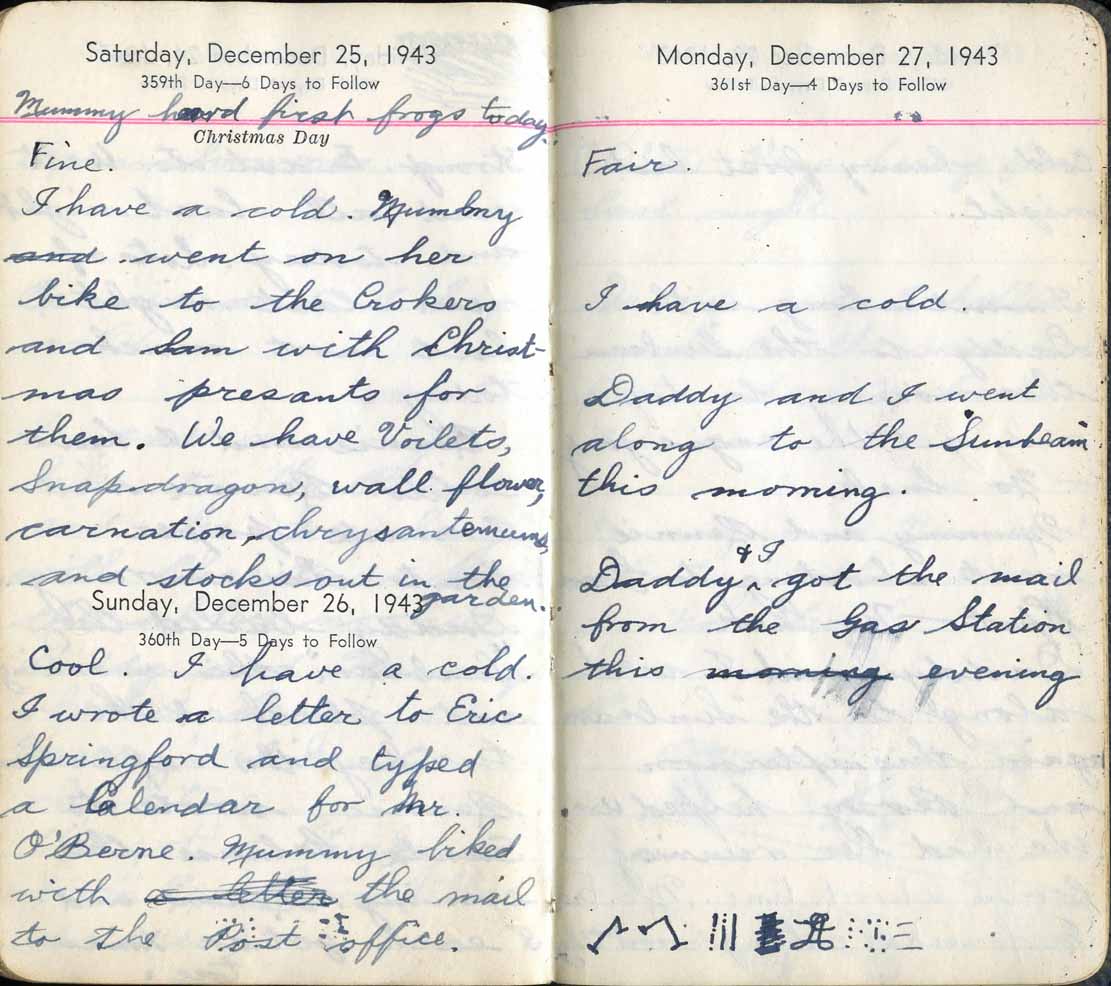 Saturday, December 25, 1943
359th Day—6 Days to Follow
Mummy heard first frogs today.
Christmas Day
Fine.
I have a cold Mummy
and went on her
bike to the Crokers
and Sam with Christ-
mas presants for
them. We have Voilets,
Snap-dragon, wall flower,
carnation, chrysantemums,
and stocks out in the
garden.
Sunday, December 26, 1943
360th Day—5 Days to Follow
Cool. I have a cold.
I wrote a letter to Eric
Springford and typed
a Calendar for Mr.
O'Berne. Mummy biked
with a letter the mail
to the Post office.
Monday, December 27, 1943
361st Day—4 Days to Follow
Fair.
I have a cold.
Daddy and I went
along to the Sunbeam
this morning.
& I
Daddy got the mail
from the Gas Station
this morning evening